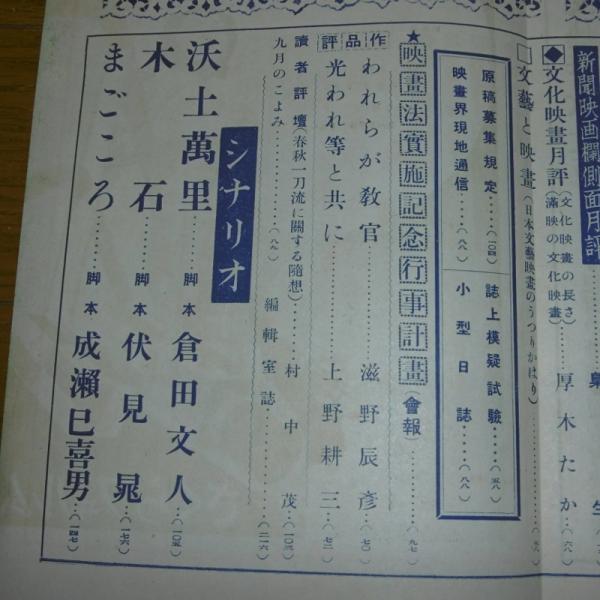 新聞映画欄側面月評
◆文化映畫月評(文化映畫の長さ
滿映の文化映畫)……厚木たか…(六八)
□文藝と映畫(日本文藝映畫のうつりかはり)
原稿募集規定……(一〇四)
誌上模疑試驗……(五八)
映畫界現地通信……(八八)
小型日誌……(八八)
★映畫法實施記念行事計畫(會報)……(九七)
作品評
われらが敎官……滋野辰彥…(七〇)
光われ等と共に……上野耕三…(七二)
讀者評壇(春秋一刀流に關する隨想)……村中茂…(一〇三)
九月のこよみ……(八九)
編輯室誌……(二一六)
シナリオ
沃土萬里 脚本 倉田文人…(一〇五)
木石 脚本 伏見晁…(一七六)
まごころ 脚本 成瀨巳喜男…(一四七)